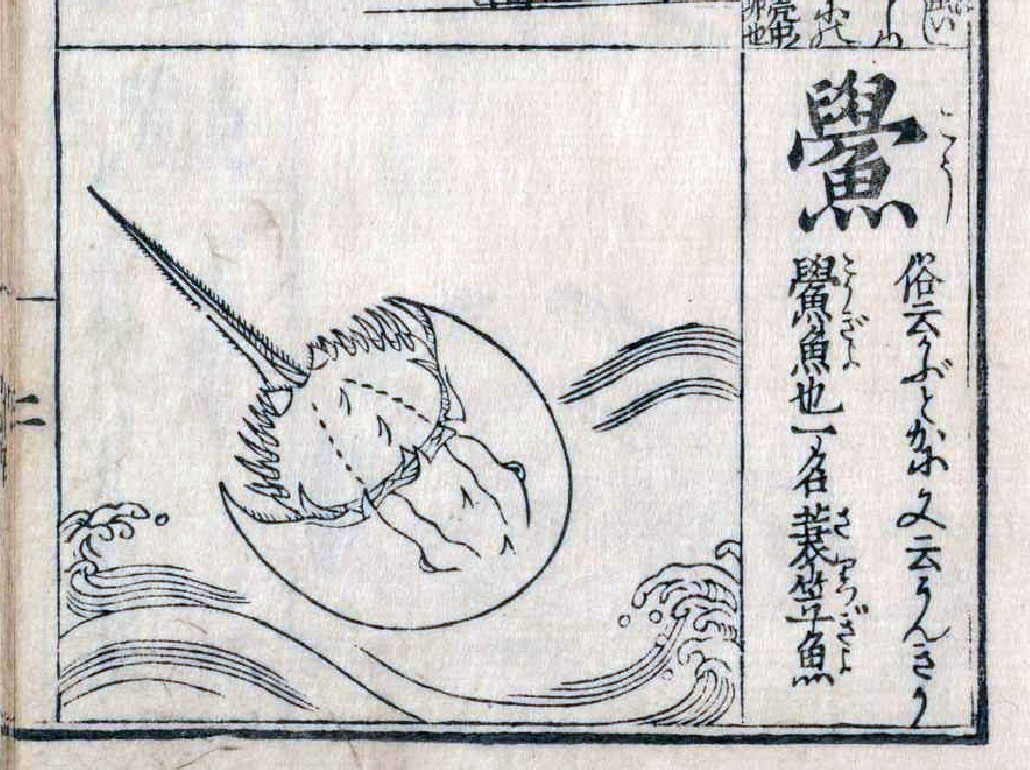 鱟
こう
俗云かぶとかに又云うんきう
鱟魚也一名蓑笠魚
こうぎよ
さりつぎよ